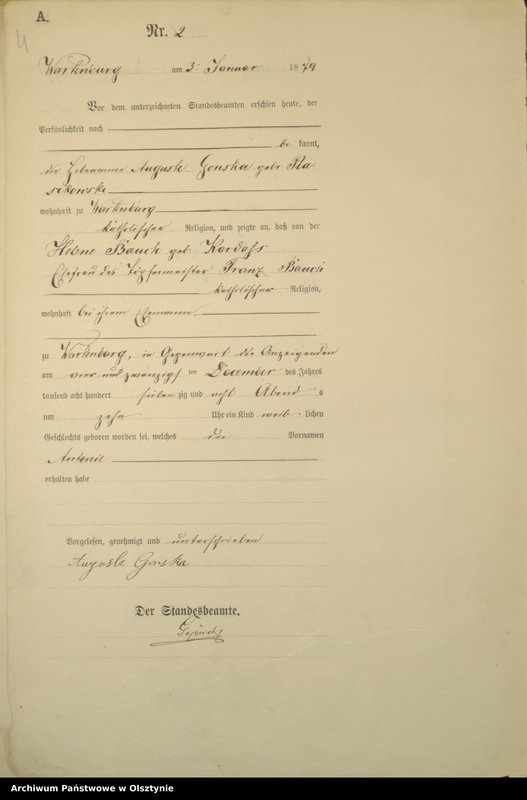 A.
4
Nr. 2
Wartenburg am 3. Januar 1879
Vor dem unterzeichneten Standesbeamten erschien heute, der
Persönlichkeit nach
be kannt,
die Hebeamme Auguste Gonska geb. Ra-
wohnhaft zu Wartenburg
katholischer Religion, und zeigte an, daß von der
Helene Bauch geb. Kordass
Ehefrau des Töpfermeister Franz Bauch
katholischer Religion,
wohnhaft bei ihrem Ehemanne
zu Wartenburg, in Gegenwart die Anzeigenden
am vier und zwanzigsten December des Jahres
tausend acht hundert sieben zig und acht Abend s
um zehn Uhr ein Kind weib lichen
Geschlechts geboren worden sei, welches den Vornamen
Antonie
erhalten habe
Vorgelesen, genehmigt und unterschrieben
Auguste Gonska
Der Standesbeamte.
Archiwum Państwowe w Olsztynie